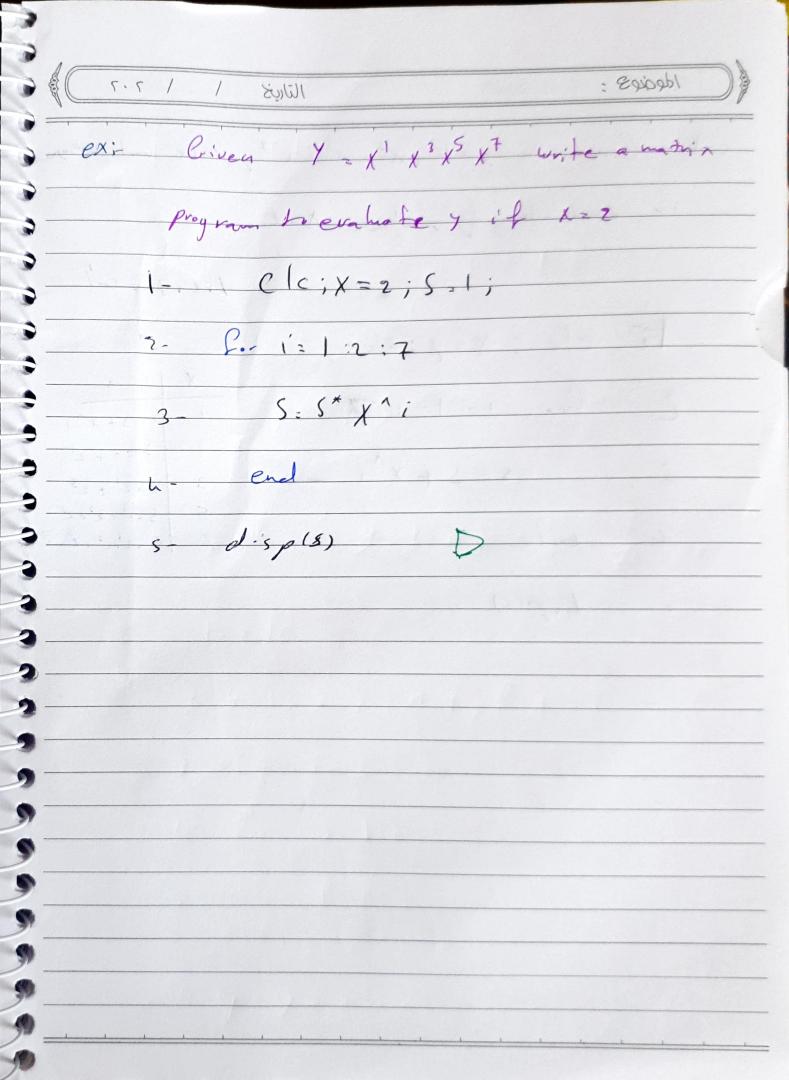 الموضوع : التاريخ / / ٢٠٢
ex:- Given Y = x^1 x^3 x^5 x^7 write a matrix
program to evaluate y if x=2
1- clc ; x=2 ; S=1 ;
2- for i=1:2:7
3- S=S*x^i
4- end
5- disp(s)